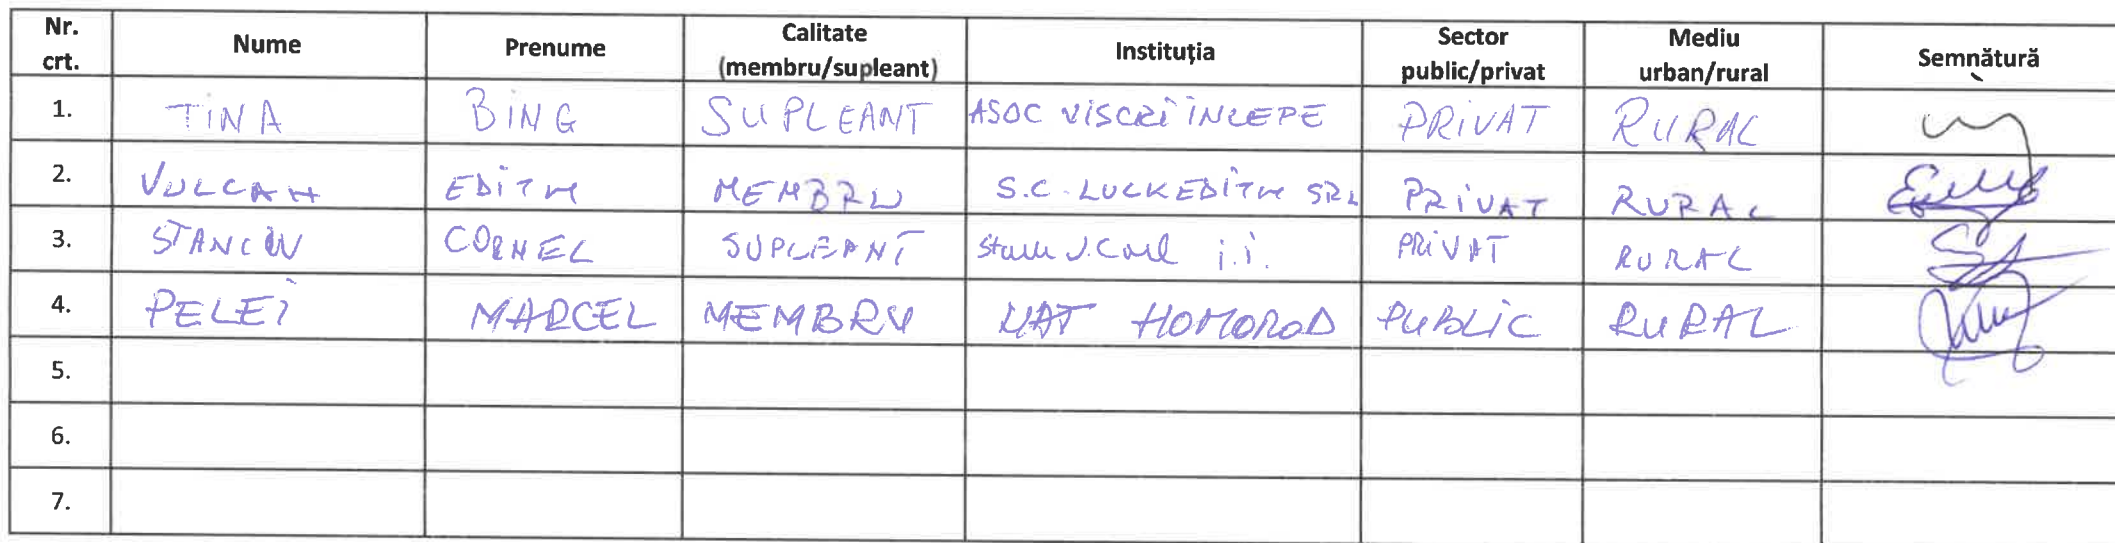 Nr. crt. Nume Prenume Calitate (membru/supleant) Instituția Sector public/privat Mediu urban/rural Semnătură
1. TINA BING SUPLEANT ASOC VISCRI ÎNCEPE PRIVAT RURAL
2. VULCAN EDITH MEMBRU S.C. LUCKEDITH SRL PRIVAT RURAL
3. STANCIU CORNEL SUPLEANT i.i. PRIVAT RURAL
4. PELEI MARCEL MEMBRU UAT HOMOROD PUBLIC RURAL
5.
6.
7.